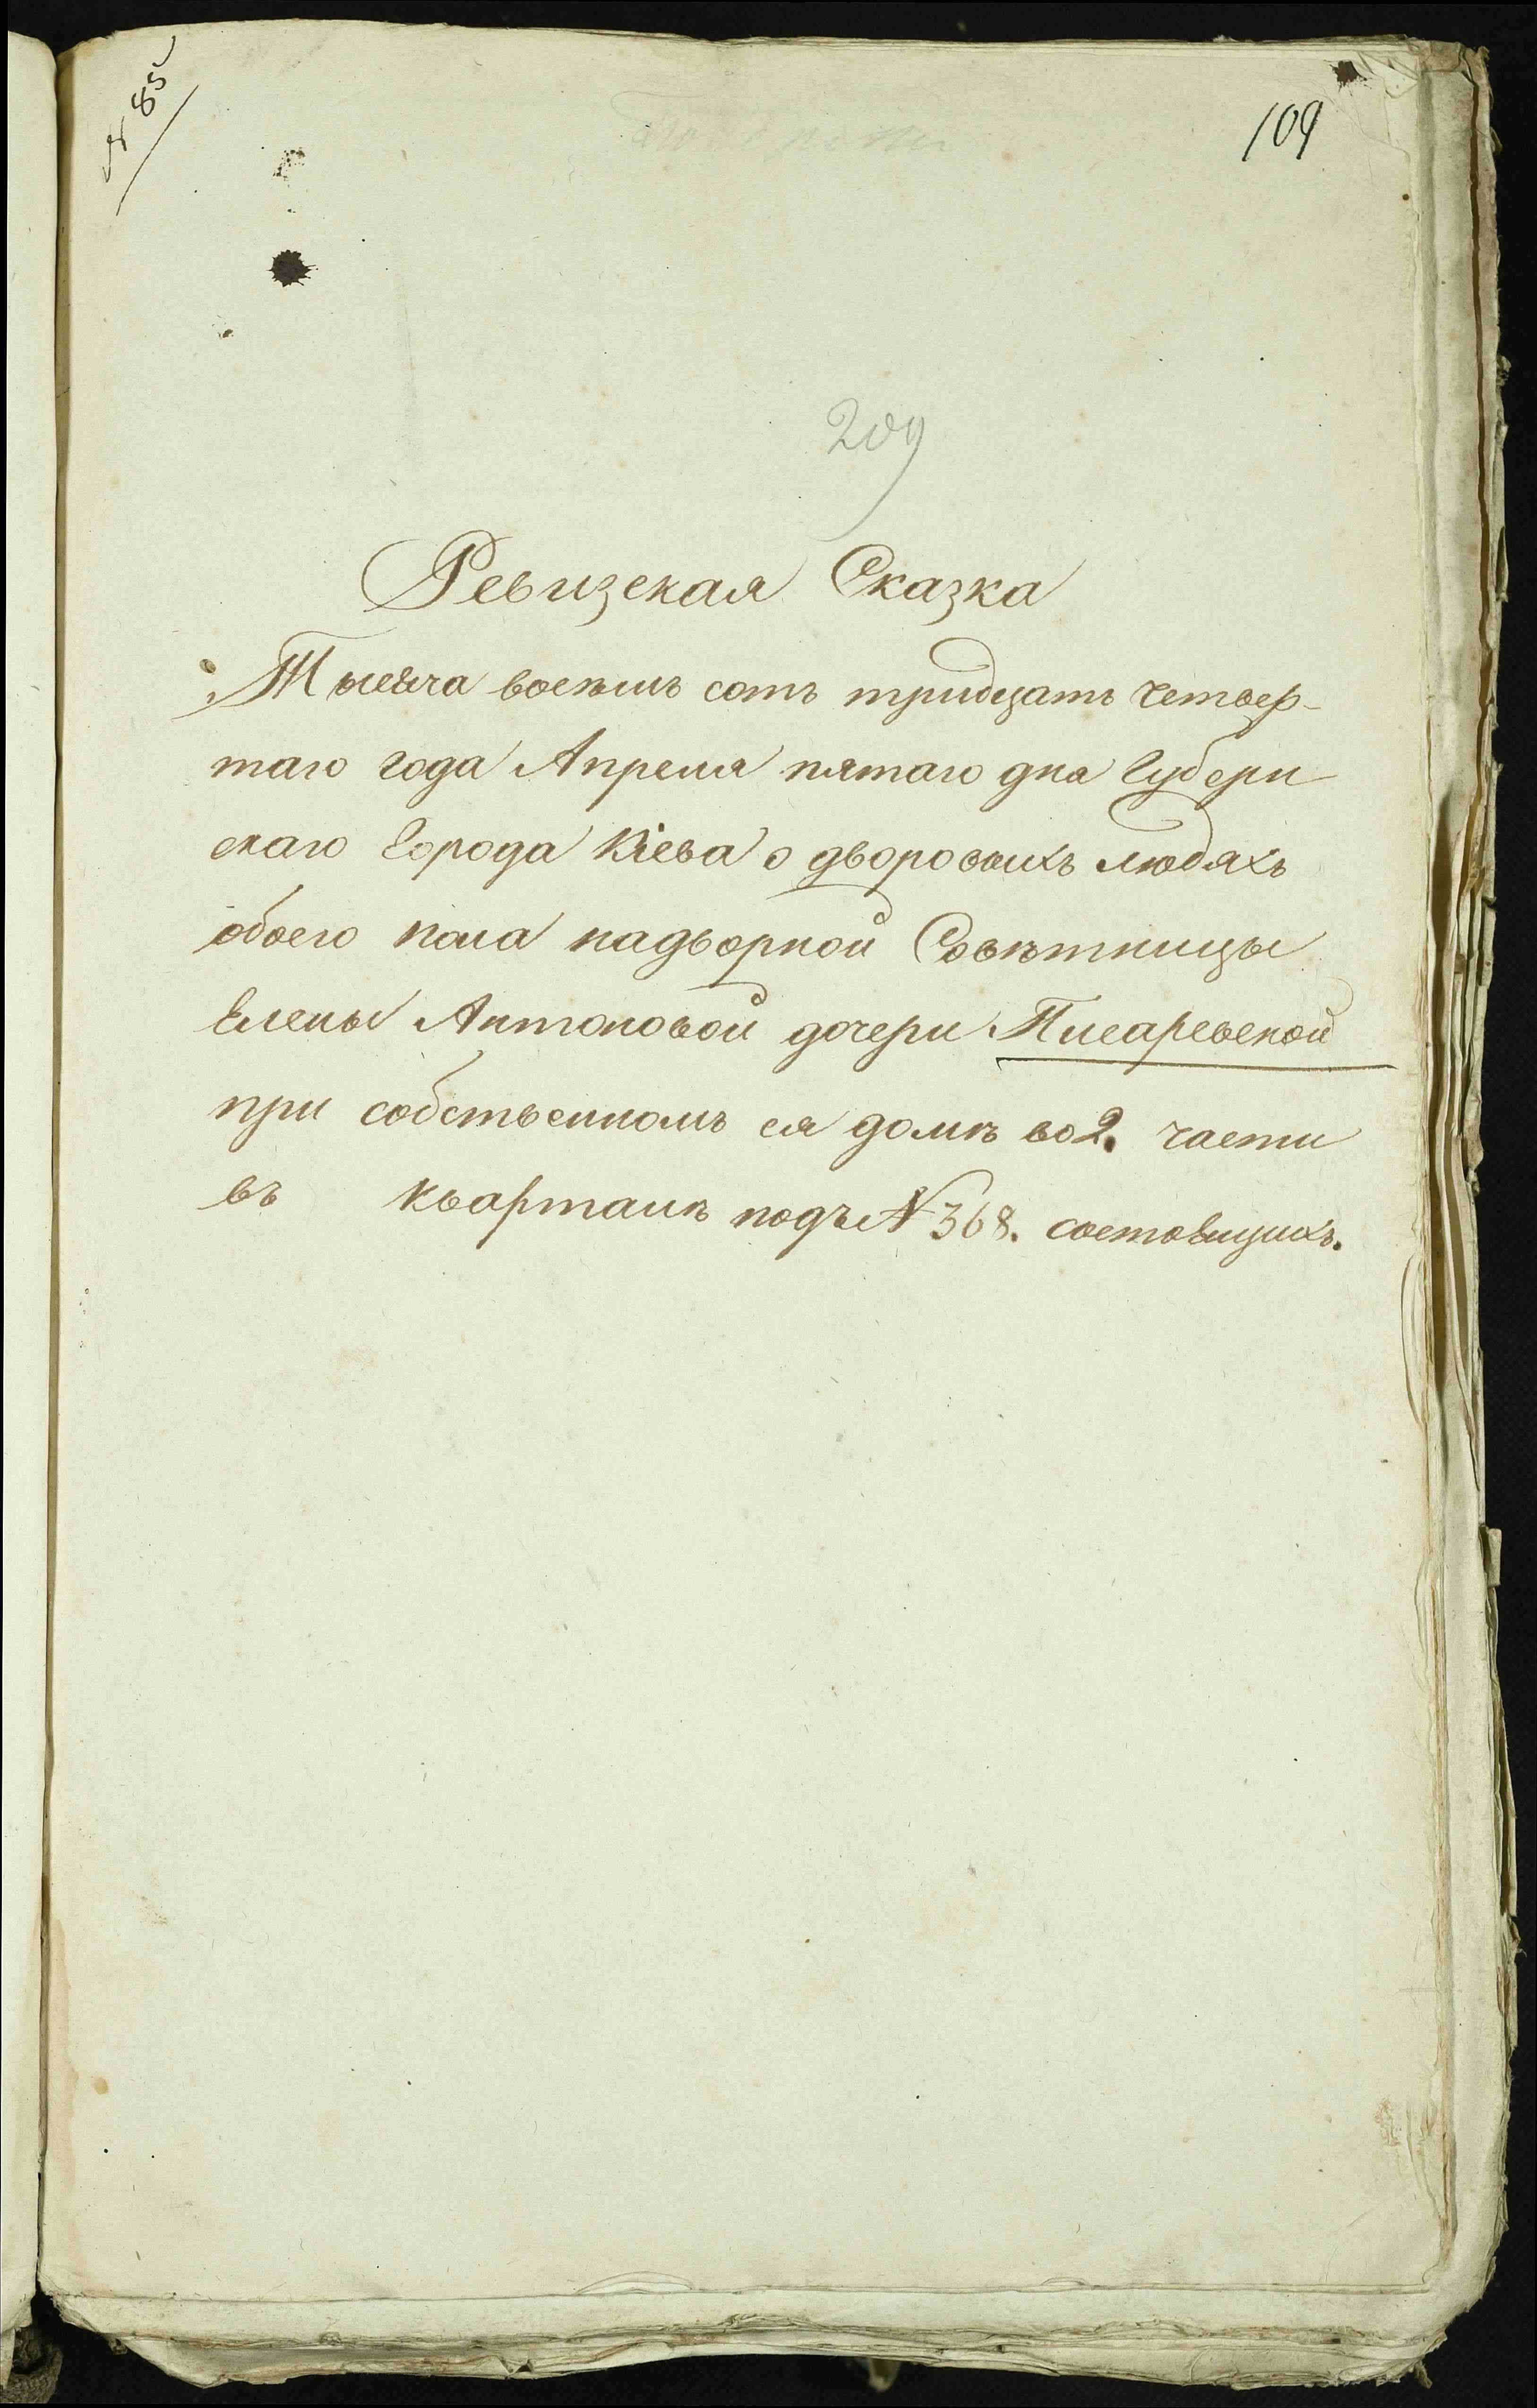 N 85
109
209
Ревизская Сказка
Тысяча восемь сотъ тридцать четвер-
таго года Апреля пятаго дня Губерн
скаго Города Кіева о дворовыхъ людяхъ
обоего пола надворной Совѣтницы
Елены Антоновой дочери Писаревской
при собственномъ ея домѣ во 2. части
въ кварталѣ подъ N 368. состоящихъ.